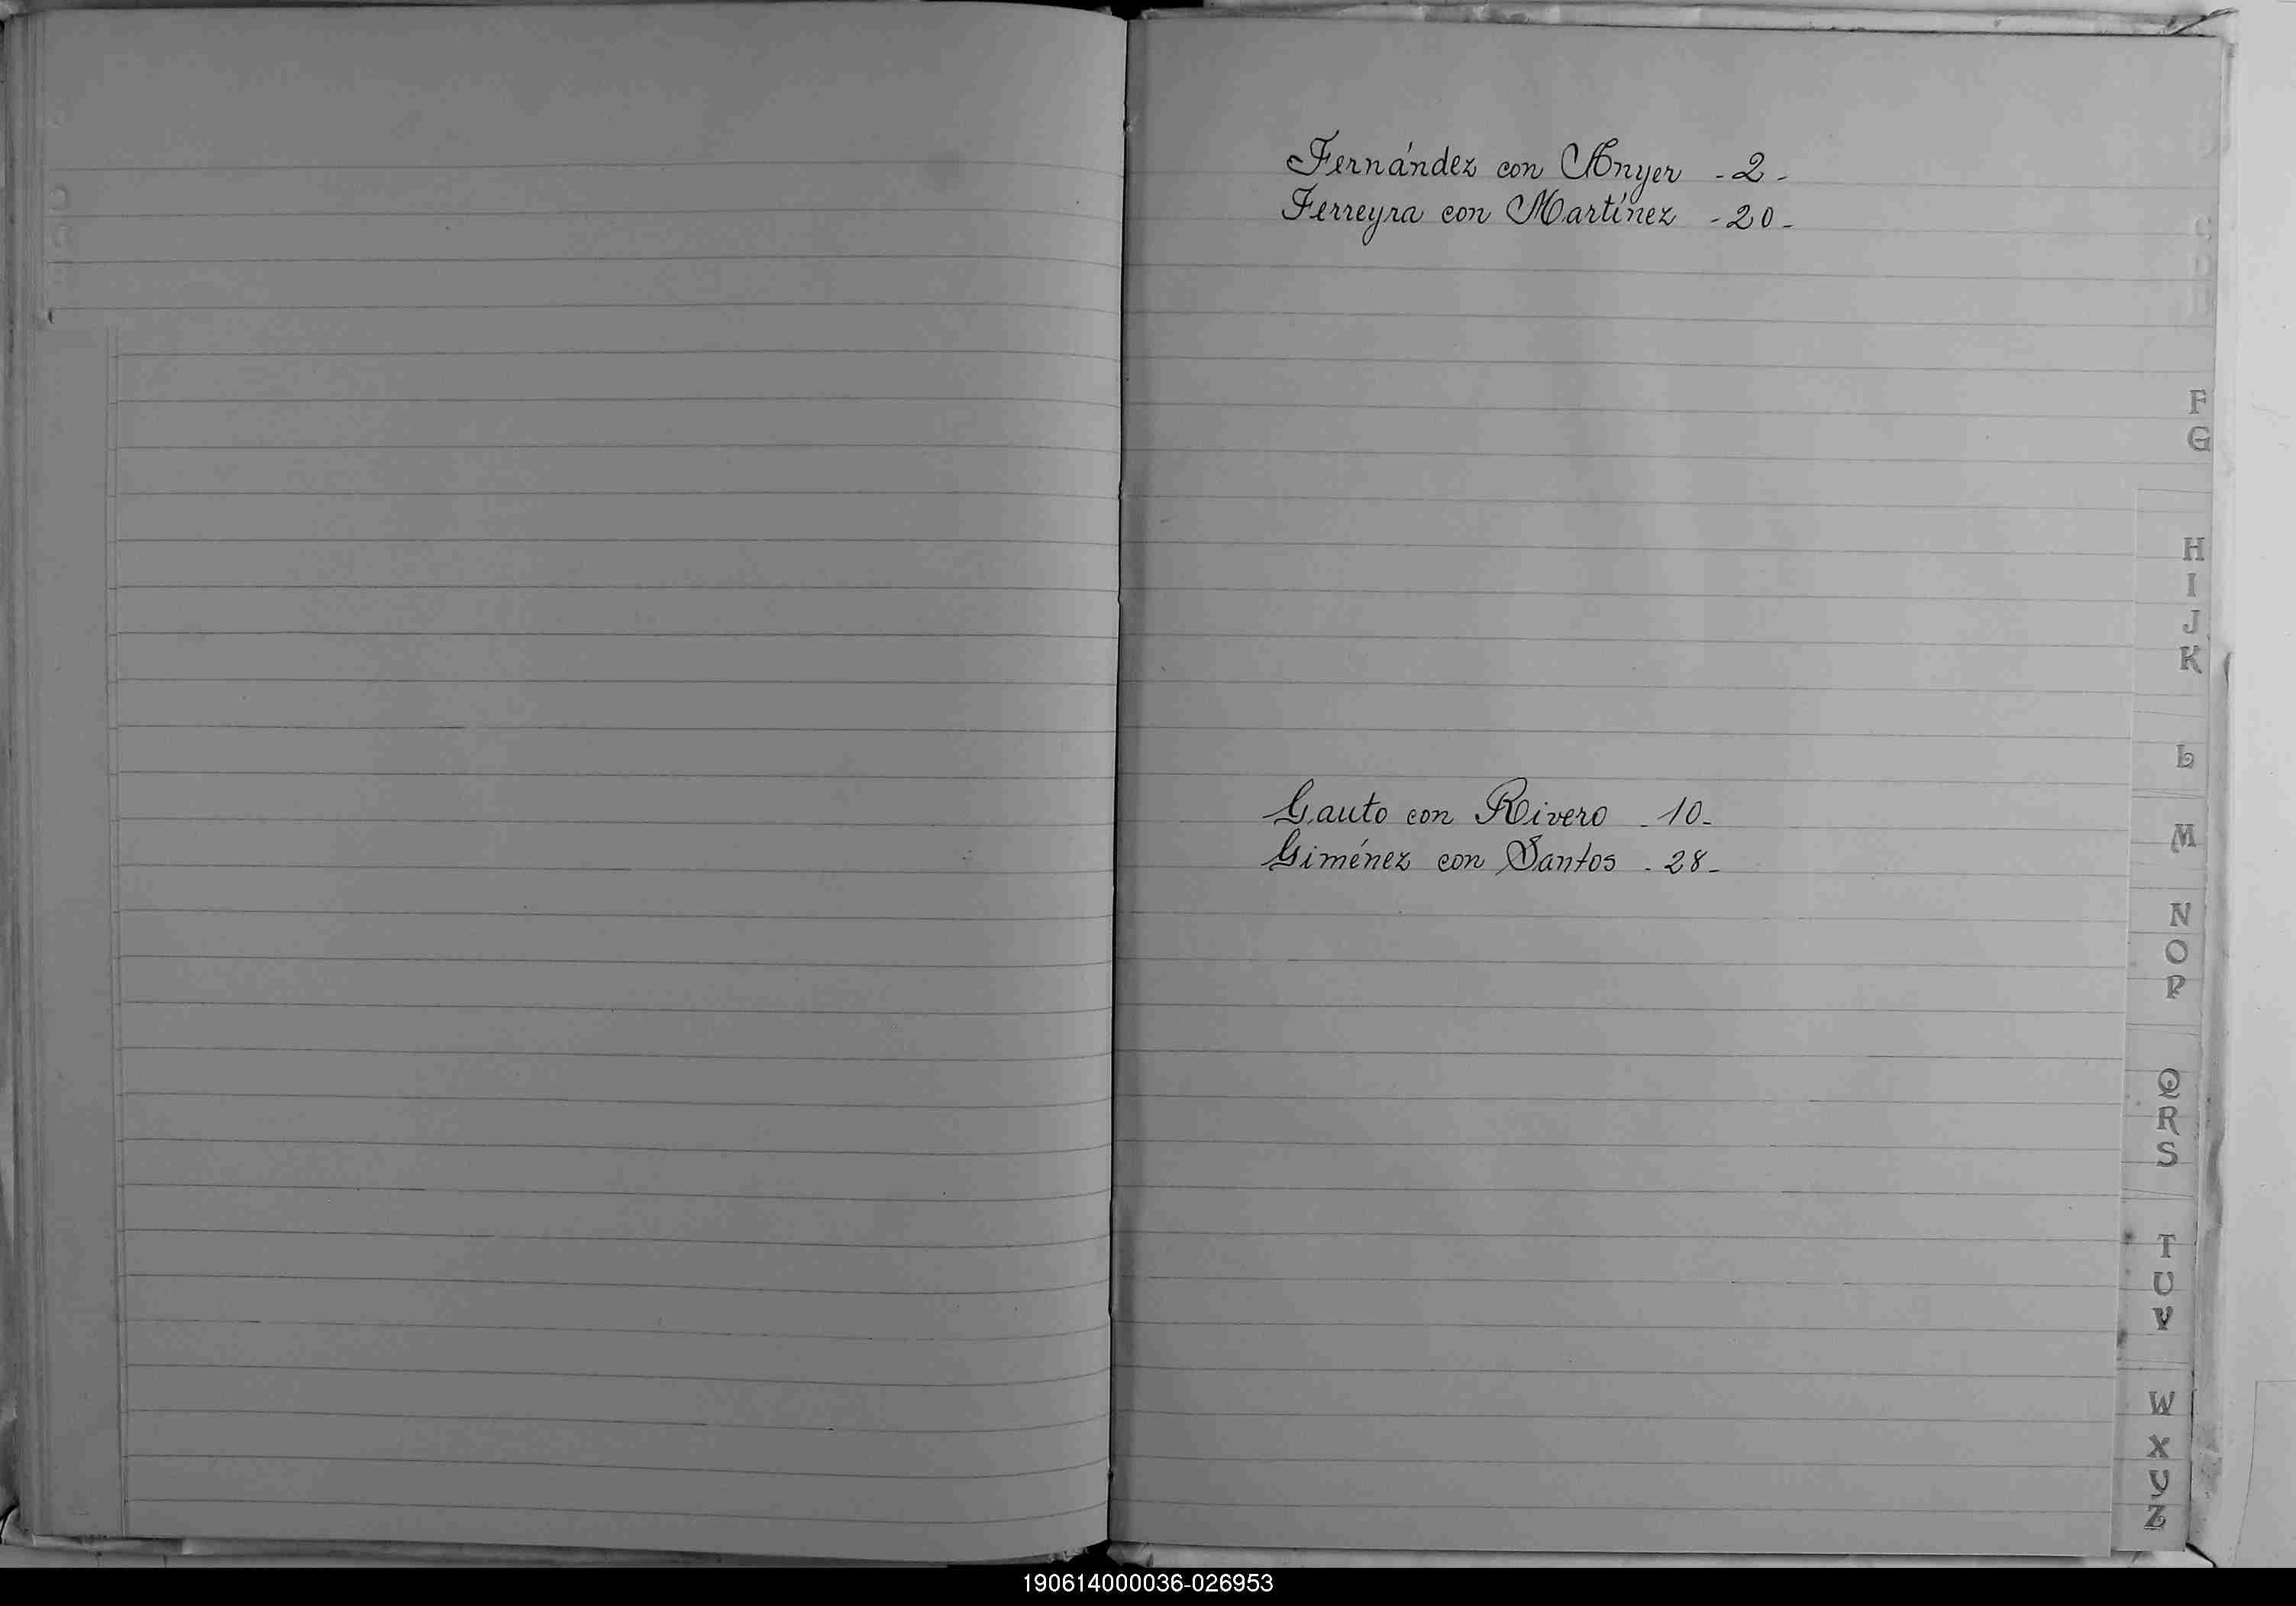 Fernández con Anyer - 2 -
Ferreyra con Martínez - 20 -
F
G
H
I
J
K
L
Gauto con Rivero - 10 -
Giménez con Santos - 28 -
M
N
O
P
Q
R
S
T
U
V
W
X
Y
Z
190614000036-026953